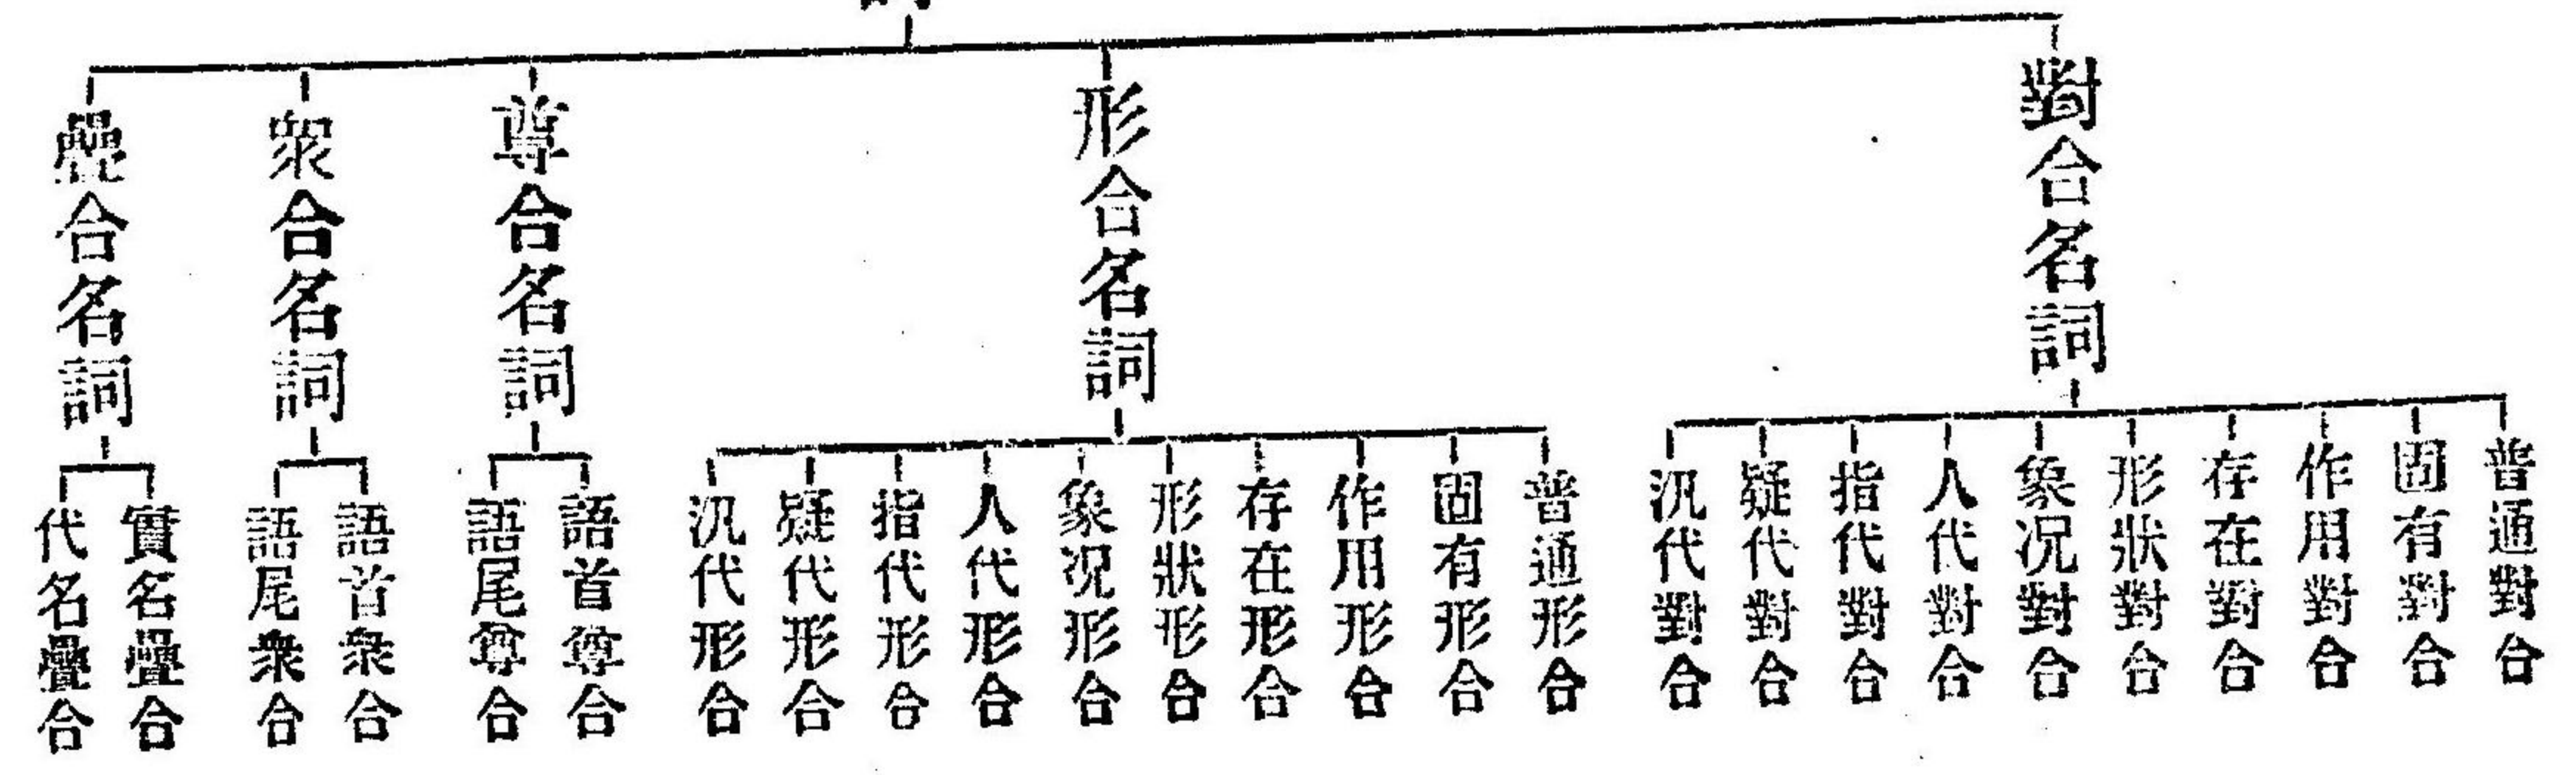 詞
對合名詞
普通對合
固有對合
作用對合
存在對合
形狀對合
象况對合
人代對合
指代對合
疑代對合
汎代對合
形合名詞
普通形合
固有形合
作用形合
存在形合
形狀形合
象况形合
人代形合
指代形合
疑代形合
汎代形合
尊合名詞
語首尊合
語尾尊合
衆合名詞
語首衆合
語尾衆合
疊合名詞
實名疊合
代名疊合